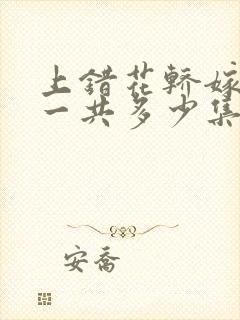 上错花轿嫁
一共多少集
安乔